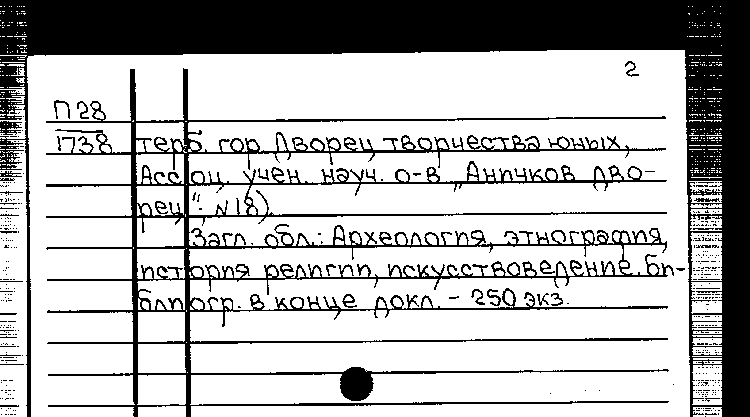 2
П28
1738 терб. гор. Дворец творчества юных,
Ассоц. учен. науч. о-в „Аничков дво-
рец“; N18).
Загл. обл.: Археология, этнография,
история религии, искусствоведение. Би-
блиогр. в конце докл. - 250 экз.